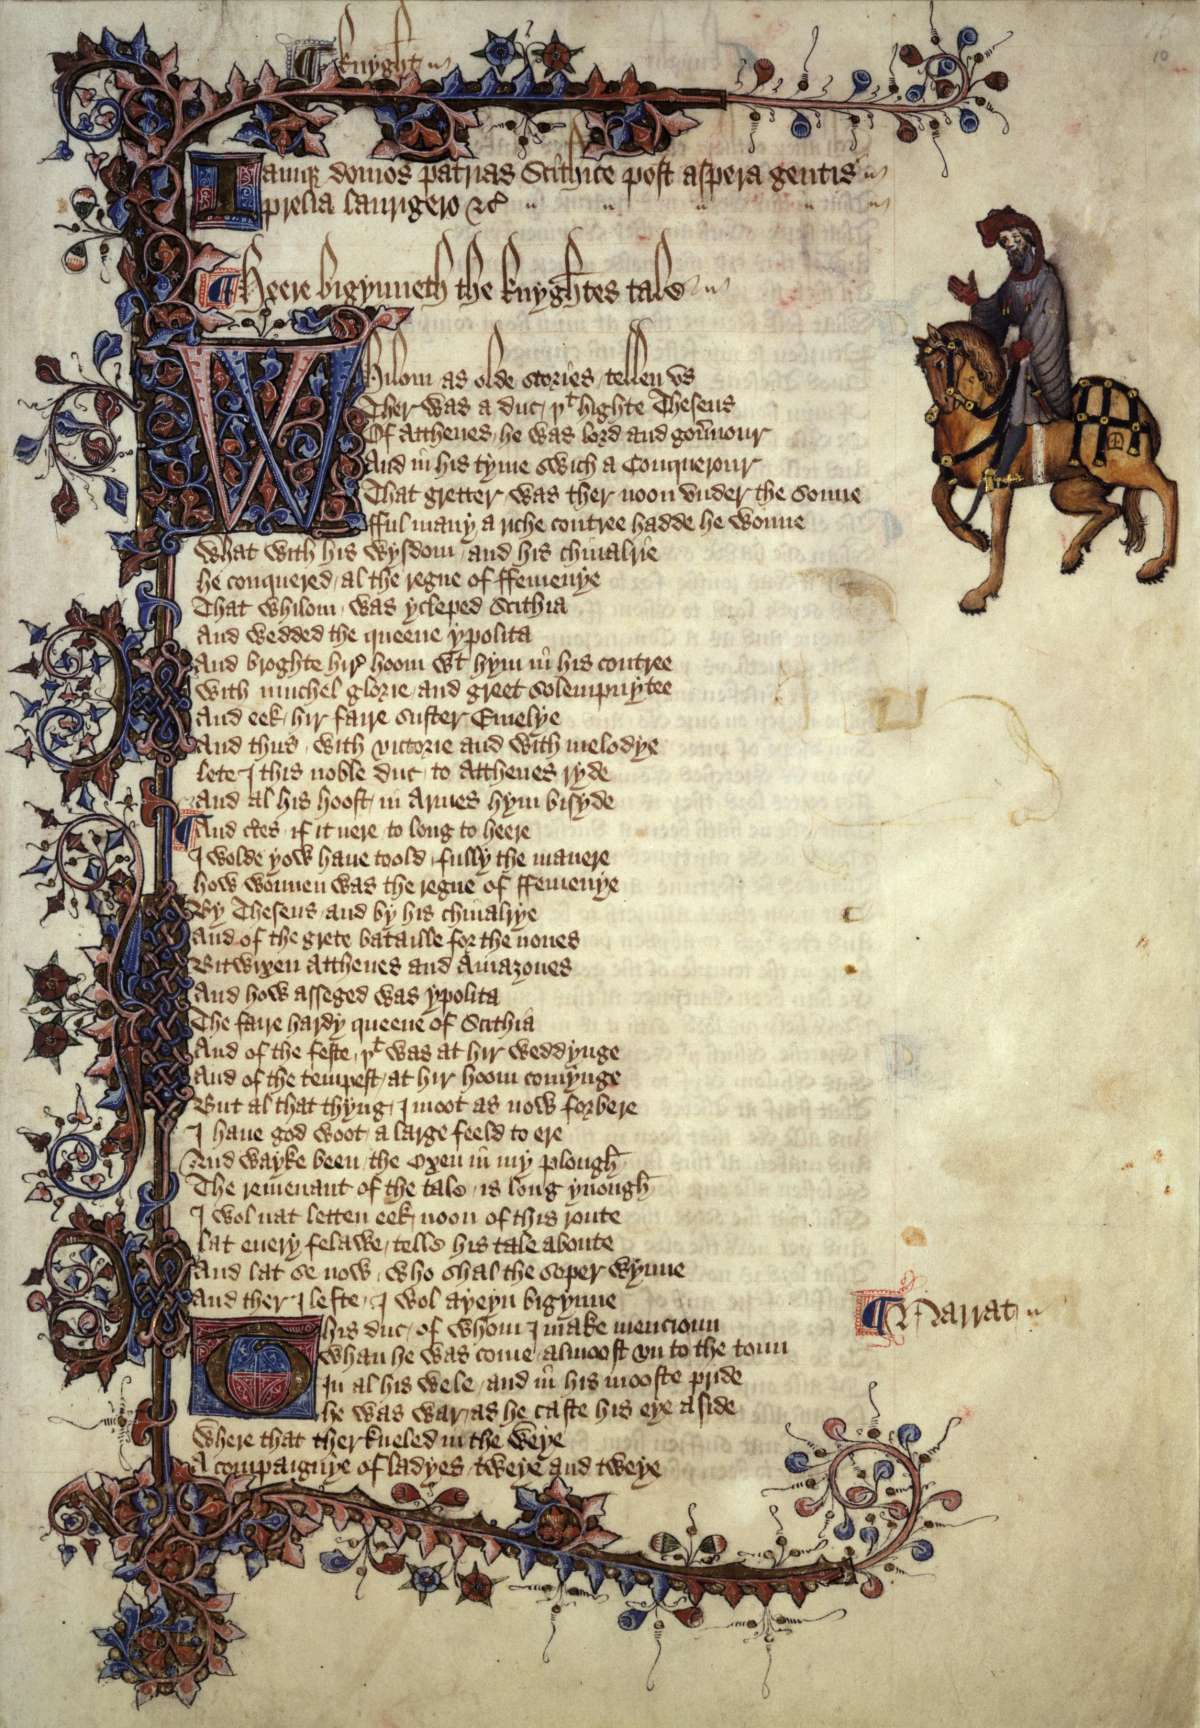 ¶ Knyght
10
Iamque domos patrias Scithice post aspera gentis
prelia laurigero &c
¶ Heere bigynneth the knyghtes tale
Whilom as olde stories / tellen vs
Ther was a duc / þͭ highte Theseus
Of Atthenes / he was lord and gou̅nour
And in his tyme swich a Conquerour
That gretter / was ther noon vnder the sonne
fful many a riche contree hadde he wonne
What with his wysdom / and his chiualrie
he conquered / al the regne of ffemenye
That whilom / was ycleped Scithia
And wedded the queene ypolita
And broghte hir hoom wͭ hym in his contree
With muchel glorie / and greet solempnytee
And eek / hir faire suster Emelye
And thus / with victorie and with melodye
lete I this noble duc / to Atthenes ryde
And al his hoost / in Armes hym bisyde
¶ And ctes / if it nere / to long to heere
I wolde yow haue toold / fully the manere
how wonnen was the regne of ffemenye
By Theseus / and by his chiualrye
And of the grete bataille for the nones
Bitwixen Atthenes and Amazones
And how asseged was ypolita
The faire hardy queene of Scithia
And of the feste / þͭ was at hir weddynge
And of the tempest / at hir hoom comynge
But al that thyng / I moot as now forbere
I haue god woot / a large feeld to ere
And wayke been / the Oxen in my plough
The remenant of the tale / is long ynough
I wol nat letten eek / noon of this route
lat euery felawe / telle his tale aboute
And lat se now / who shal the soper wynne
And ther I lefte / I wol ayeyn bigynne
¶ Narrat
This duc / of whom I make mencioun
Whan he was come / almoost vn to the toun
In al his wele / and in his mooste pride
he was war / as he caste his eye aside
Where that ther kneled in the weye
A compaignye of ladyes / tweye and tweye